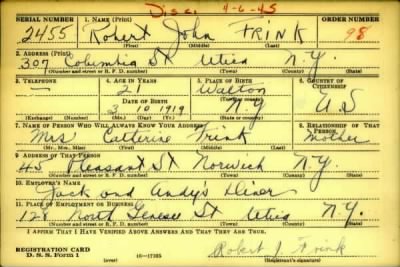 Disc. 4-6-45
SERIAL NUMBER 1. NAME (Print) ORDER NUMBER
2455 Robert John FRINK 98
(First) (Middle) (Last)
2. ADDRESS (Print)
307 Columbia St Utica N.Y.
(Number and street or R. F. D. number) (Town) (County) (State)
3. TELEPHONE 4. AGE IN YEARS 5. PLACE OF BIRTH 6. COUNTRY OF CITIZENSHIP
— 21 Walton
DATE OF BIRTH (Town or county)
3 10 1919 N.Y U.S
(Exchange) (Number) (Mo.) (Day) (Yr.) (State or country)
7. NAME OF PERSON WHO WILL ALWAYS KNOW YOUR ADDRESS 8. RELATIONSHIP OF THAT PERSON
Mrs Catterine Frink Mother
(Mr., Mrs., Miss) (First) (Middle) (Last)
9. ADDRESS OF THAT PERSON
45 Pleasant St Norwich N.Y.
(Number and street or R. F. D. number) (Town) (County) (State)
10. EMPLOYER'S NAME
Jack and Andy's Diner
11. PLACE OF EMPLOYMENT OR BUSINESS
128 North Genesee St Utica N.Y.
(Number and street or R. F. D. number) (Town) (County) (State)
I AFFIRM THAT I HAVE VERIFIED ABOVE ANSWERS AND THAT THEY ARE TRUE.
REGISTRATION CARD
D. S. S. Form 1 (over) 16—17105 Robert J. Frink
(Registrant's signature)